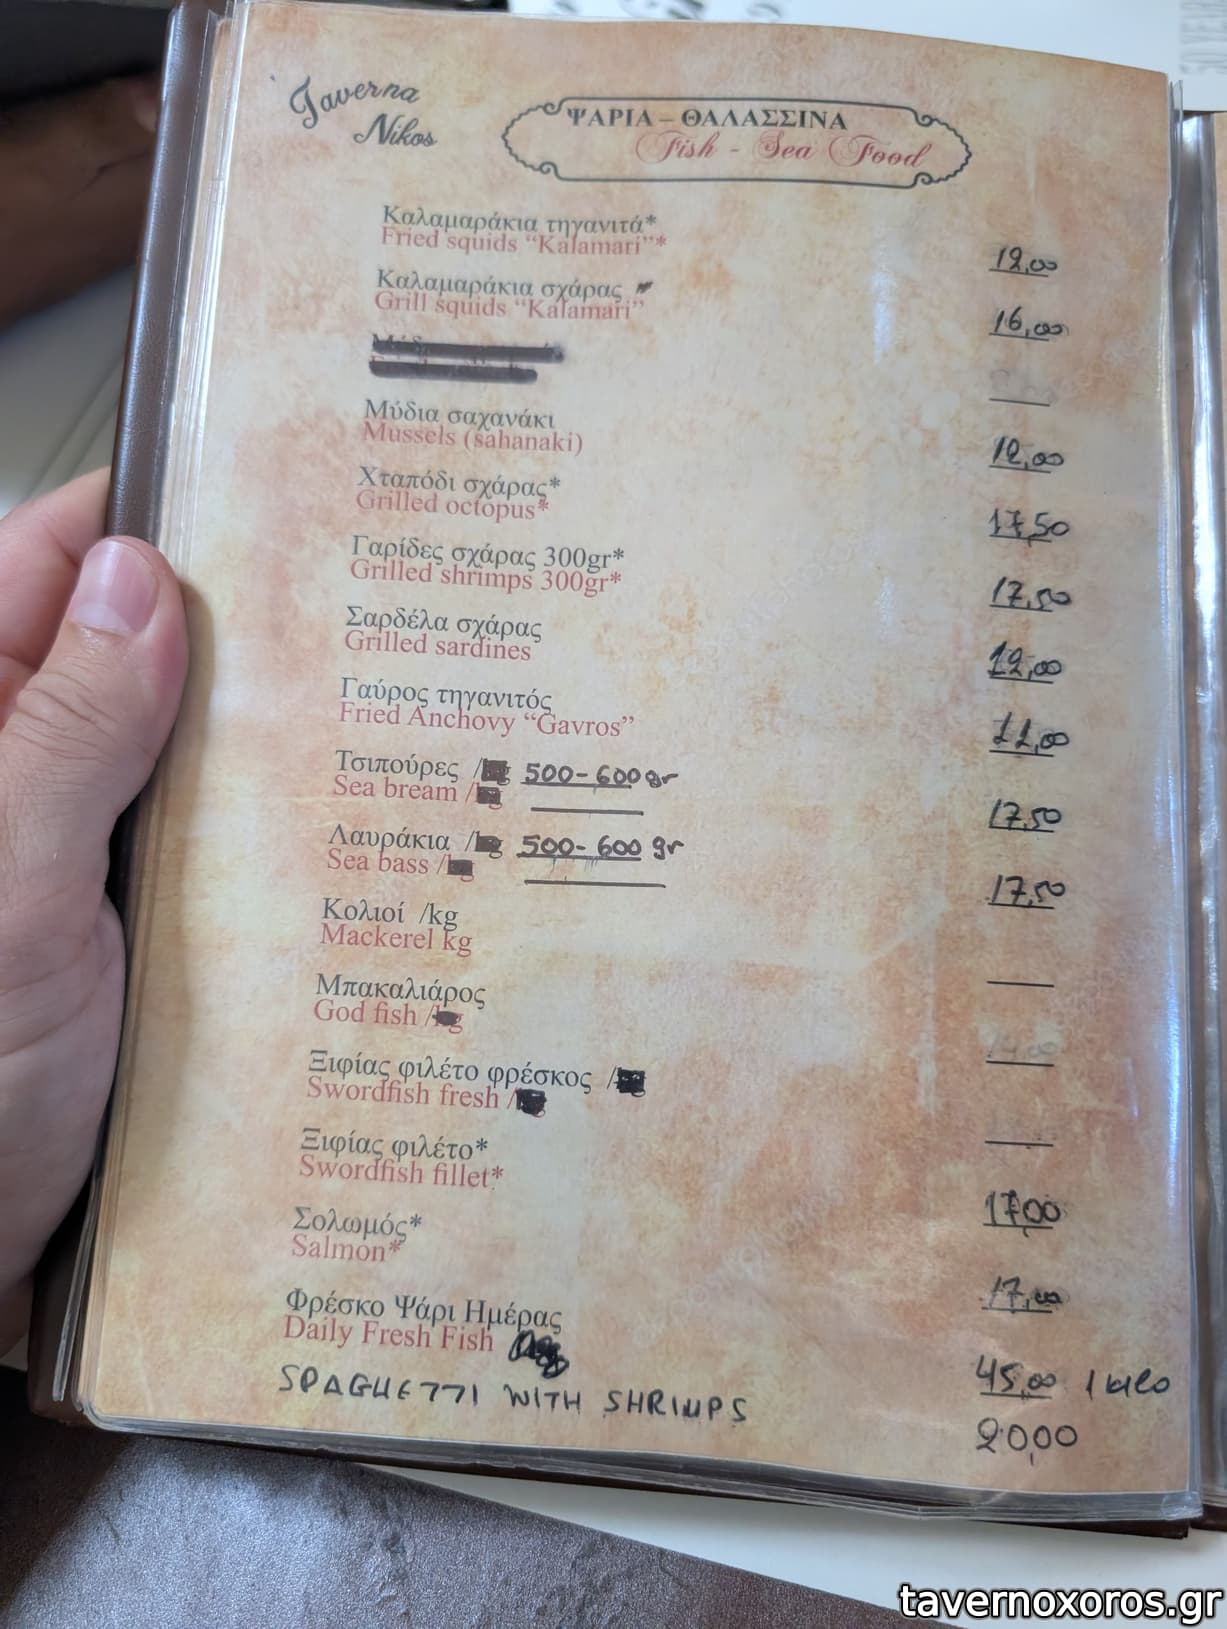 Taverna
Nikos
ΨΑΡΙΑ – ΘΑΛΑΣΣΙΝΑ
Fish - Sea Food
Καλαμαράκια τηγανιτά*
Fried squids “Kalamari”* 12,00
Καλαμαράκια σχάρας
Grill squids “Kalamari” 16,00
Μύδια σαχανάκι
Mussels (sahanaki) 12,00
Χταπόδι σχάρας*
Grilled octopus* 17,50
Γαρίδες σχάρας 300gr*
Grilled shrimps 300gr* 17,50
Σαρδέλα σχάρας
Grilled sardines 12,00
Γαύρος τηγανιτός
Fried Anchovy “Gavros” 11,00
Τσιπούρες / 500-600gr
Sea bream / 17,50
Λαυράκια / 500-600 gr
Sea bass / 17,50
Κολιοί /kg
Mackerel kg
Μπακαλιάρος
God fish /
Ξιφίας φιλέτο φρέσκος /
Swordfish fresh /
Ξιφίας φιλέτο*
Swordfish fillet* 17,00
Σολωμός*
Salmon* 17,00
Φρέσκο Ψάρι Ημέρας
Daily Fresh Fish 45,00 1 kilo
SPAGHETTI WITH SHRIMPS 20,00
tavernoxoros.gr